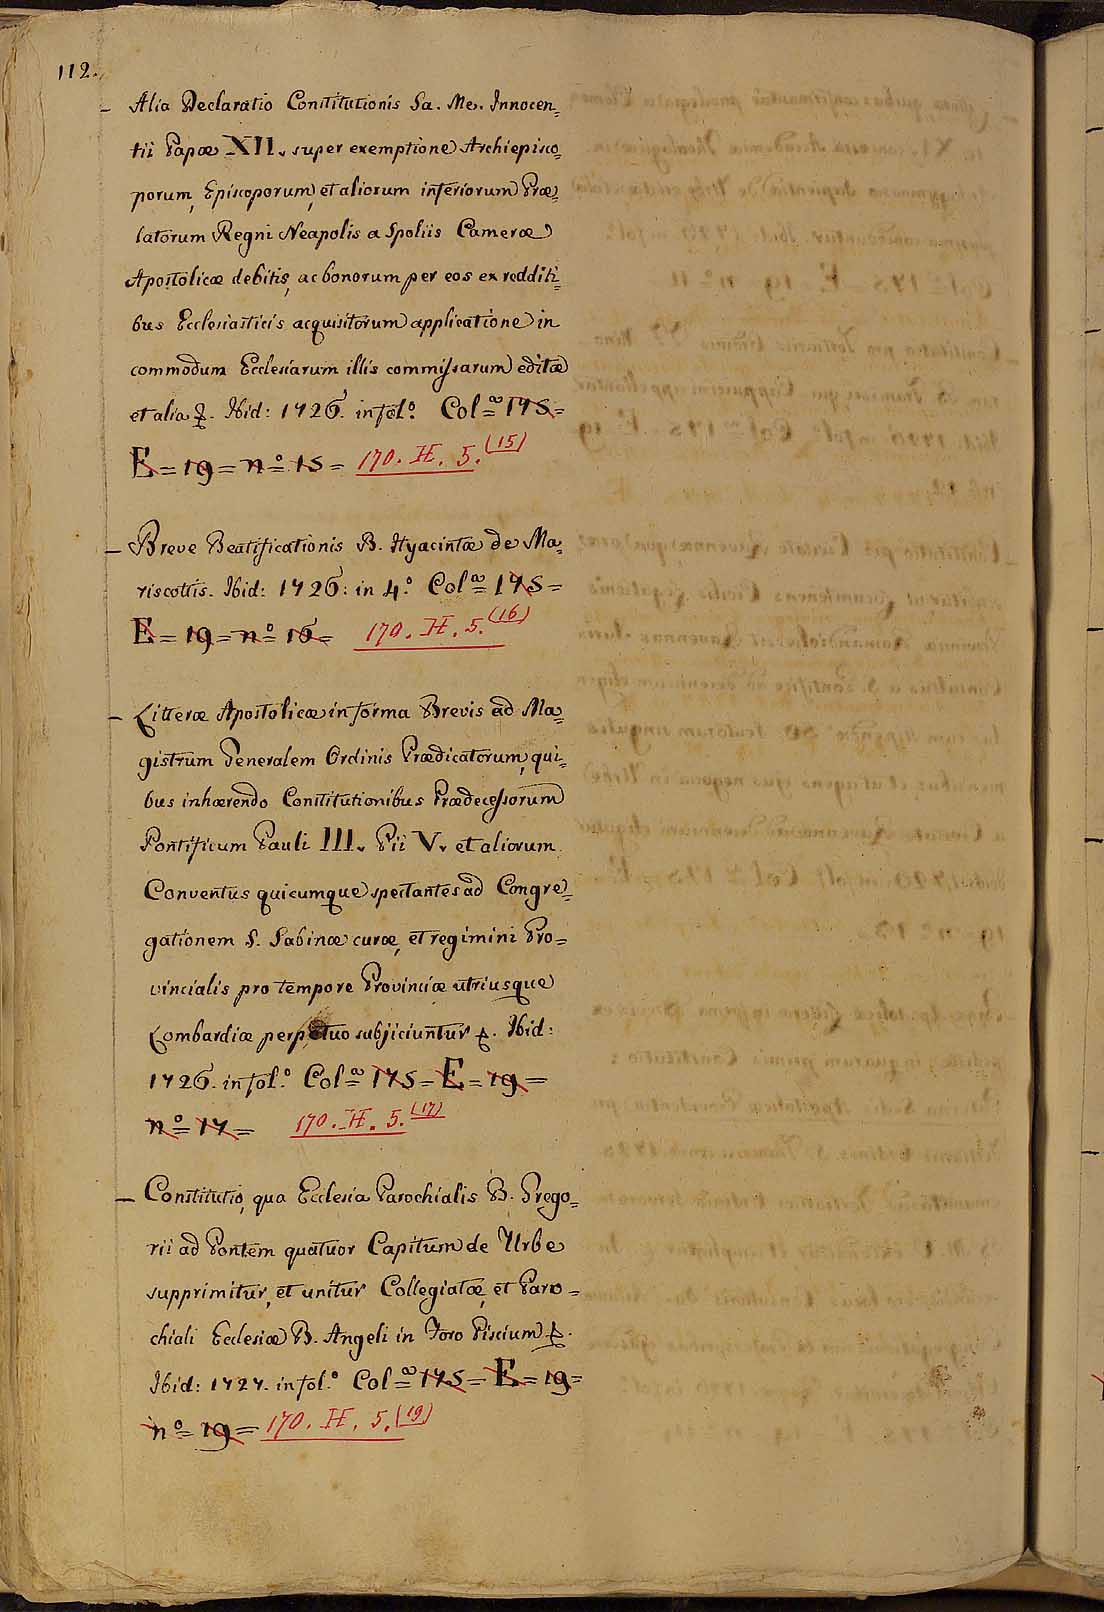 112.
– Alia Declaratio Constitutionis Sa. Me. Innocen=
tii Papæ XII. super exemptione Archiepisco=
porum, Episcoporum, et aliorum inferiorum Præ=
latorum Regni Neapolis a Spoliis Cameræ
Apostolicæ debitis, ac bonorum per eos ex redditi=
bus Ecclesiasticis acquisitorum applicatione in
commodum Ecclesiarum illis commissarum editæ
et alia &. Ibid: 1726. in fol.º Col.ª 175=
E=19=nº=15= 170. H. 5. (15)
– Breve Beatificationis B. Hyacintæ de Ma=
riscottis. Ibid: 1726: in 4.º Col.ª 175=
E=19=nº=16= 170. H. 5. (16)
– Litteræ Apostolicæ in forma Brevis ad Ma=
gistrum Generalem Ordinis Prædicatorum, qui=
bus inhærendo Constitutionibus Prædecessorum
Pontificum Pauli III. Pii V. et aliorum
Conventus quicumque spectantes ad Congre=
gationem S. Sabinæ curæ, et regimini Pro=
vincialis pro tempore Provinciæ utriusque
Lombardiæ perpetuo subjiciuntur &. Ibid:
1726. in fol.º Col.ª 175=E=19=
nº=17= 170. H. 5. (17)
– Constitutio, qua Ecclesia Parochialis B. Grego=
rii ad Pontem quatuor Capitum de Urbe
supprimitur, et unitur Collegiatæ, et Paro=
chiali Ecclesiæ B. Angeli in Foro Piscium &.
Ibid: 1727. in fol.º Col.ª 175=E=19=
nº=19= 170. H. 5. (19)